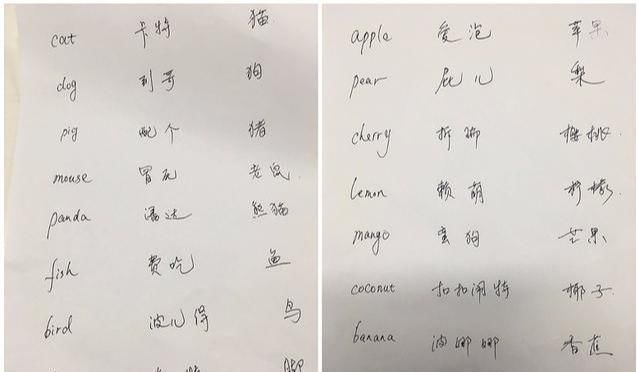 cat 卡特 猫
dog 到哥 狗
pig 配个 猪
mouse 冒死 老鼠.
panda 潘达 熊猫
fish 费吃 鱼
bird 波儿得 鸟
脚
apple 爱泡 苹果
pear 屁儿 梨
cherry 拆挪 樱桃.
lemon 赖萌 柠檬.
mango 蛮狗 芒果
coconut 扣扣闹特 椰子.
banana 波娜娜 香蕉